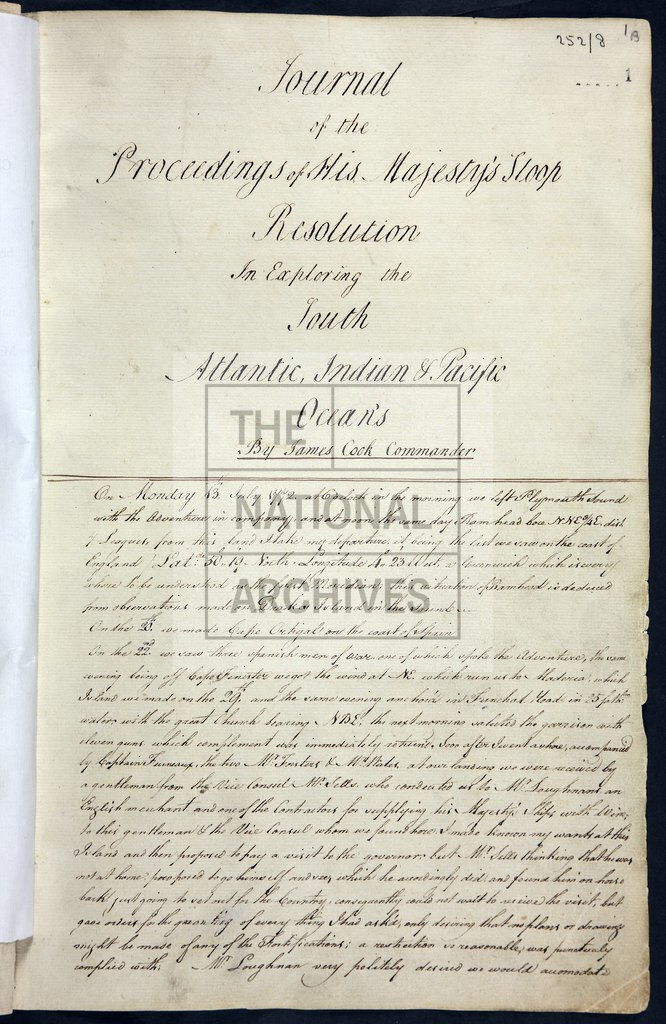 252/8 1B
1
Journal
of the
Proceedings of His Majesty's Sloop
Resolution
In Exploring the
South
Atlantic, Indian & Pacific
Oceans
By James Cook Commander
THE
NATIONAL
ARCHIVES
On Monday 13 July 1772 at 6 oclock in the morning we left Plymouth Sound
with the Adventure in company, and at noon the same day Ramhead bore NNE dist
Leagues, from this land I take my departure, it being the last we saw on the coast of
England (Latde 50°.19' North. Longitude 4° 23' West. of Greenwich which is every
where to be understood as the first Meridian, the situation of Ramhead is deduced
from observations made on Drakes Island in the Sound
On the 20th we made Cape Ortigal on the coast of Spain
On the 22nd we saw three Spanish men of war one of which spoke the Adventure, the same
evening being off Cape Finister we got the wind at NE which run us to Madeira, which
Island we made on the 29th and the same evening anchor'd in Funchal Road in 25 fathm
water with the great Church bearing NBE, the next morning saluted the garrison with
eleven guns which complement was immediately return'd. Soon after I went ashore, accompanied
by Captain Furneaux, the two Mr Forsters & Mr Wales, at our landing we were received by
a gentleman from the Vice Consul Mr Sills, who conducted us to Mr Loughnans an
English merchant and one of the Contractors for supplying his Majesty's Ships with Wine,
to this gentleman & the Vice Consul whom we found here I made known my wants at this
Island and then proposed to pay a visit to the governor, but Mr Sills thinking that he was
not at home proposed to go himself and see, which he accordingly did and found him on horse
back just going to set out for the Country, consequently could not wait to receive the visit, but
gave orders for the granting of every thing I had ask'd, only desiring that no plans or drawings
might be made of any of the Fortifications; a restriction so reasonable, was punctually
complied with; Mr Loughnan very politely desired we would accomodate